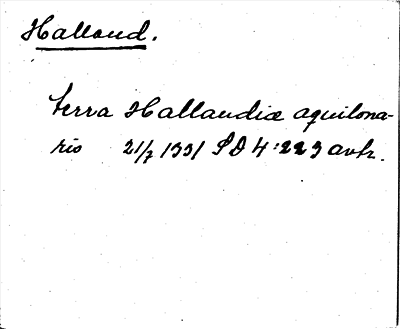 Halland.
terra Hallandiæ aquilona-
ris 21/7 1331 SD 4:223 avtr.